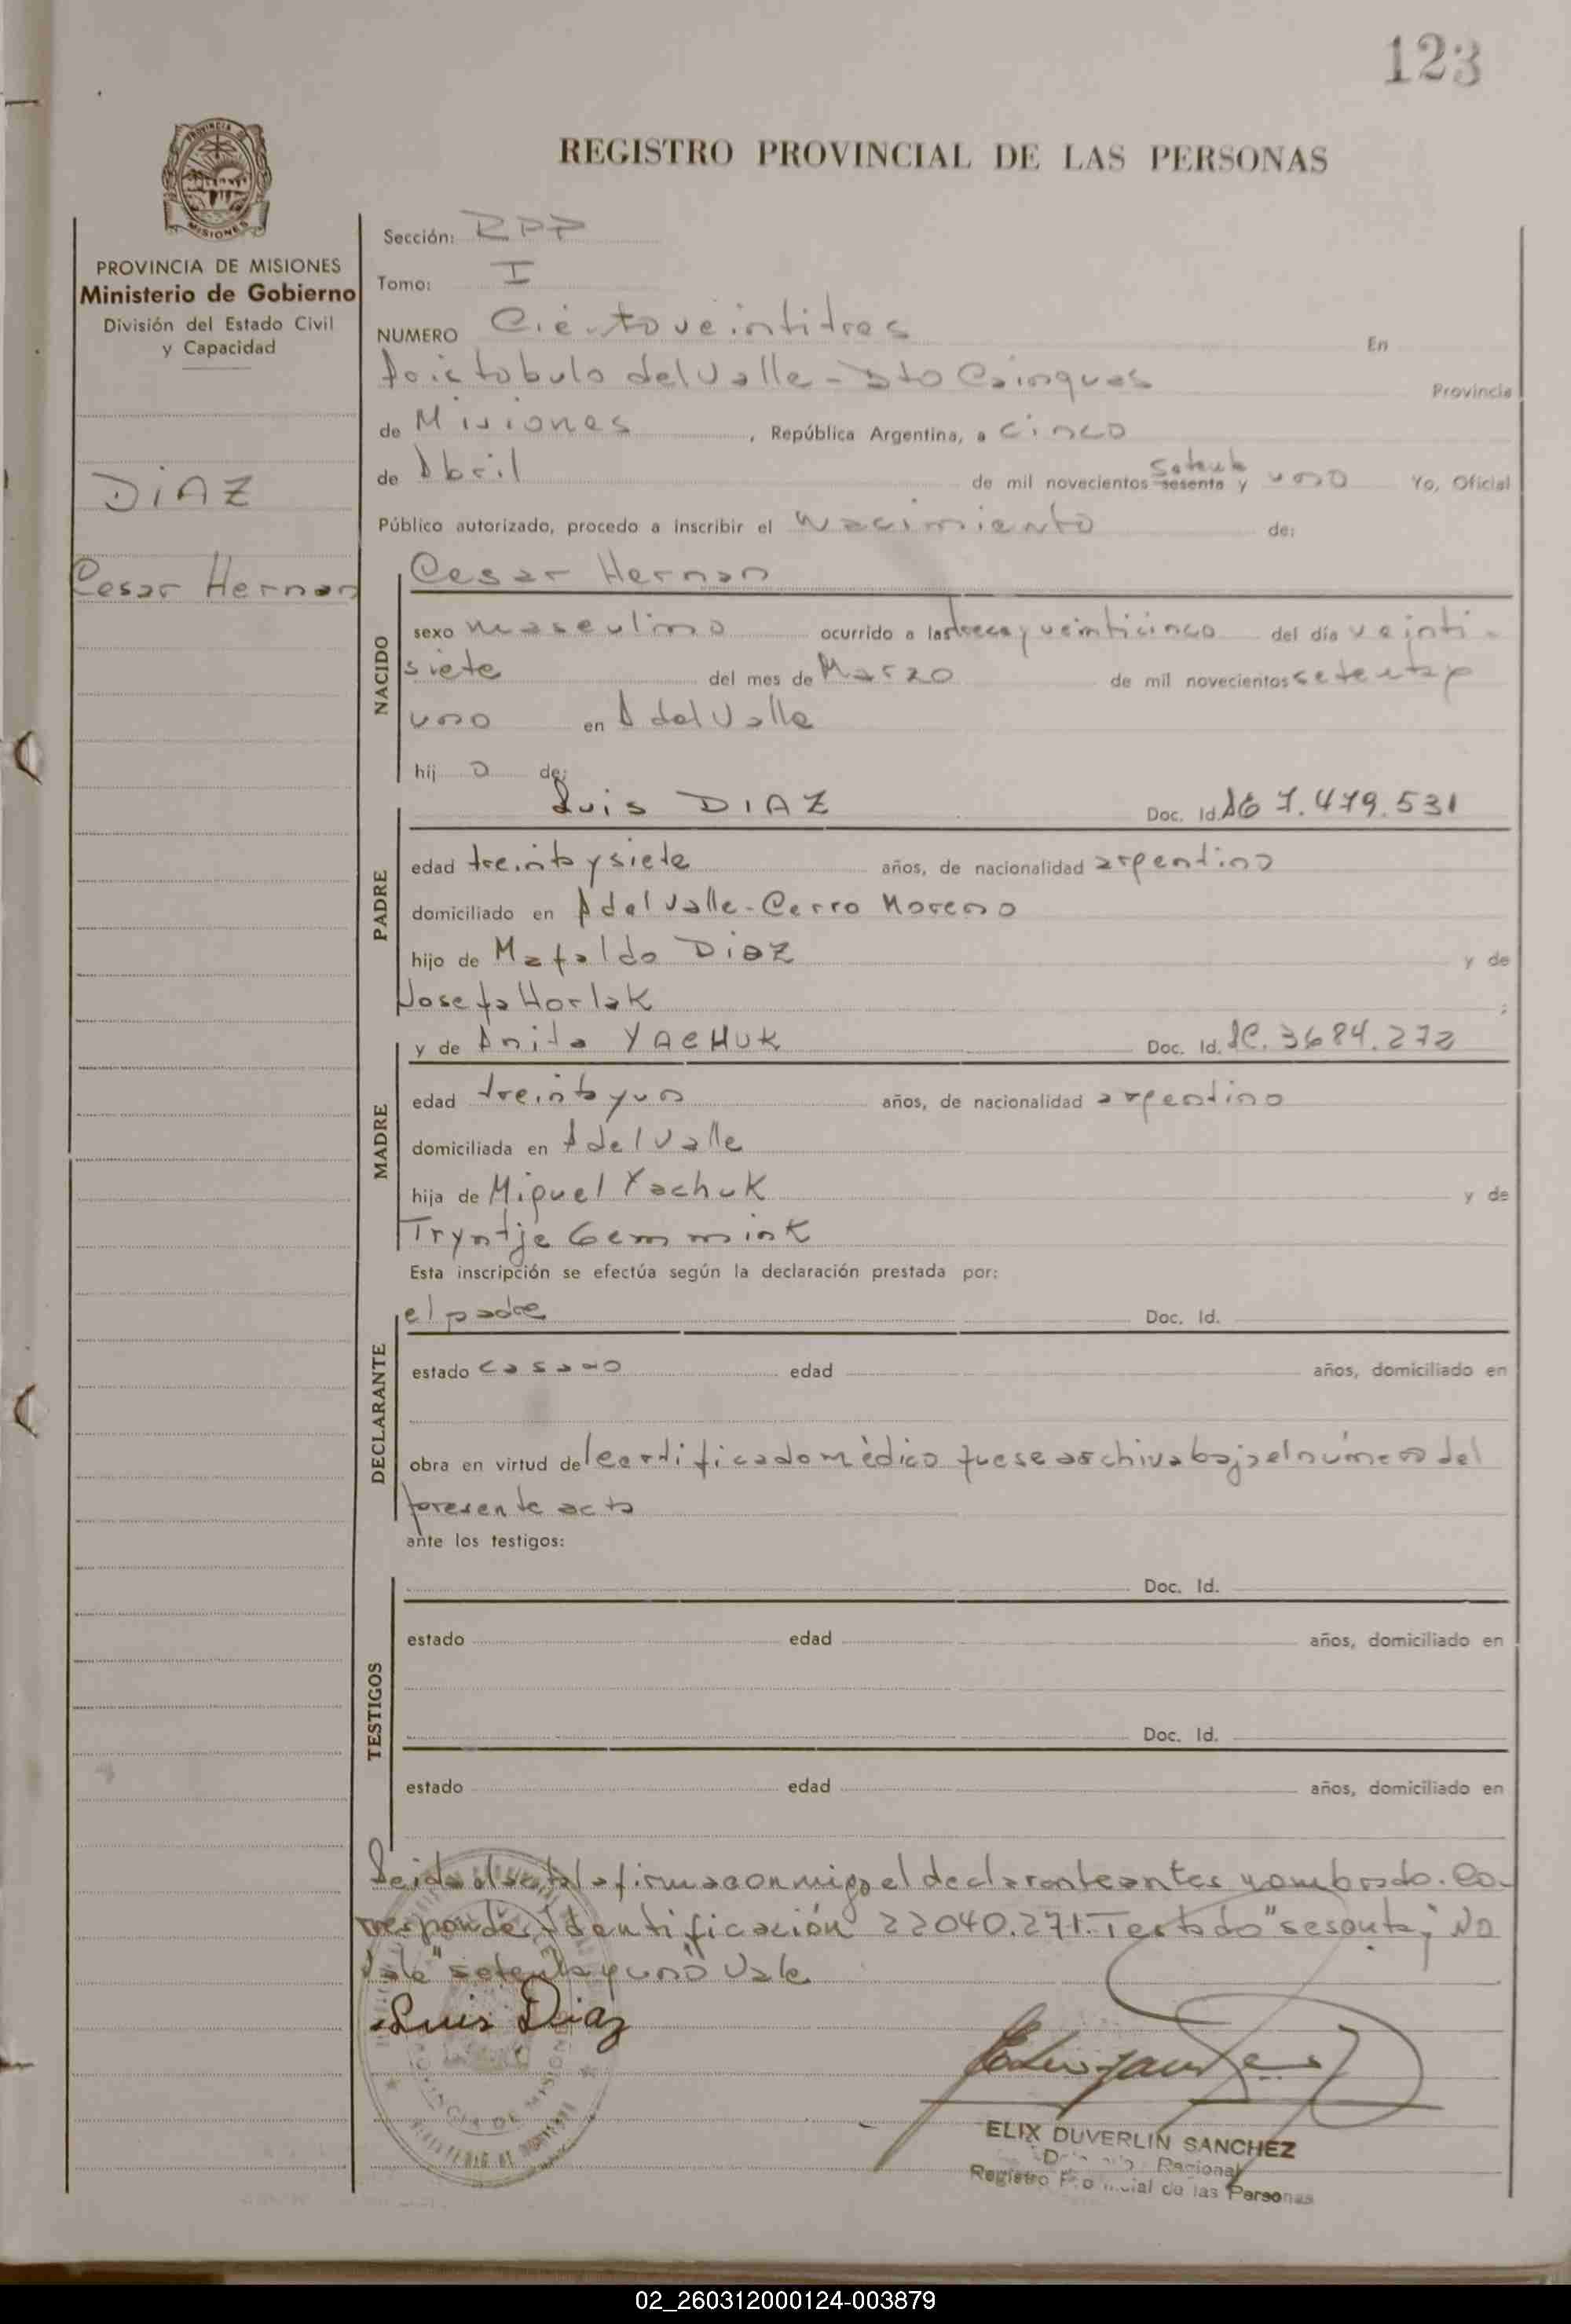 123
REGISTRO PROVINCIAL DE LAS PERSONAS
PROVINCIA DE
MISIONES
PROVINCIA DE MISIONES
Ministerio de Gobierno
División del Estado Civil
y Capacidad
DiAZ
Cesar Hernan
Sección: RPP
Tomo: I
NUMERO Cientoveintitres En
Aristobulo del Valle - Dto Cainguas Provincia
de Misiones, República Argentina, a cinco
de Abril de mil novecientos sesenta setenta y uno Yo, Oficial
Público autorizado, procedo a inscribir el nacimiento de:
NACIDO
Cesar Hernan
sexo masculino ocurrido a las trece y veinticinco del día veinti-
siete del mes de Marzo de mil novecientos setenta y
uno en A del Valle
hij o de:
PADRE
Luis DIAZ Doc. Id. 7.479.531
edad treinta y siete años, de nacionalidad argentina
domiciliado en A del Valle - Cerro Moreno
hijo de Mafaldo Diaz y de
Josefa Horlak ;
MADRE
y de Anita YACHUK Doc. Id. 3684.272
edad treinta y un años, de nacionalidad argentina
domiciliada en A del Valle
hija de Miguel Yachuk y de
Tryntje Gemmink
Esta inscripción se efectúa según la declaración prestada por:
DECLARANTE
el padre Doc. Id.
estado casado edad años, domiciliado en
obra en virtud del certificado mèdico que se archiva bajo el número del
presente acta
ante los testigos:
TESTIGOS
Doc. Id.
estado edad años, domiciliado en
Doc. Id.
estado edad años, domiciliado en
Leida el acta la firma conmigo el declarante antes nombrado. Co-
rresponde Identificación 22040.271. Testado "sesenta" No
Vale "setenta y uno" Vale
Luis Diaz
PROVINCIA DE MISIONES
ELIX DUVERLIN SANCHEZ
Regional
Registro Provincial de las Personas
02_260312000124-003879